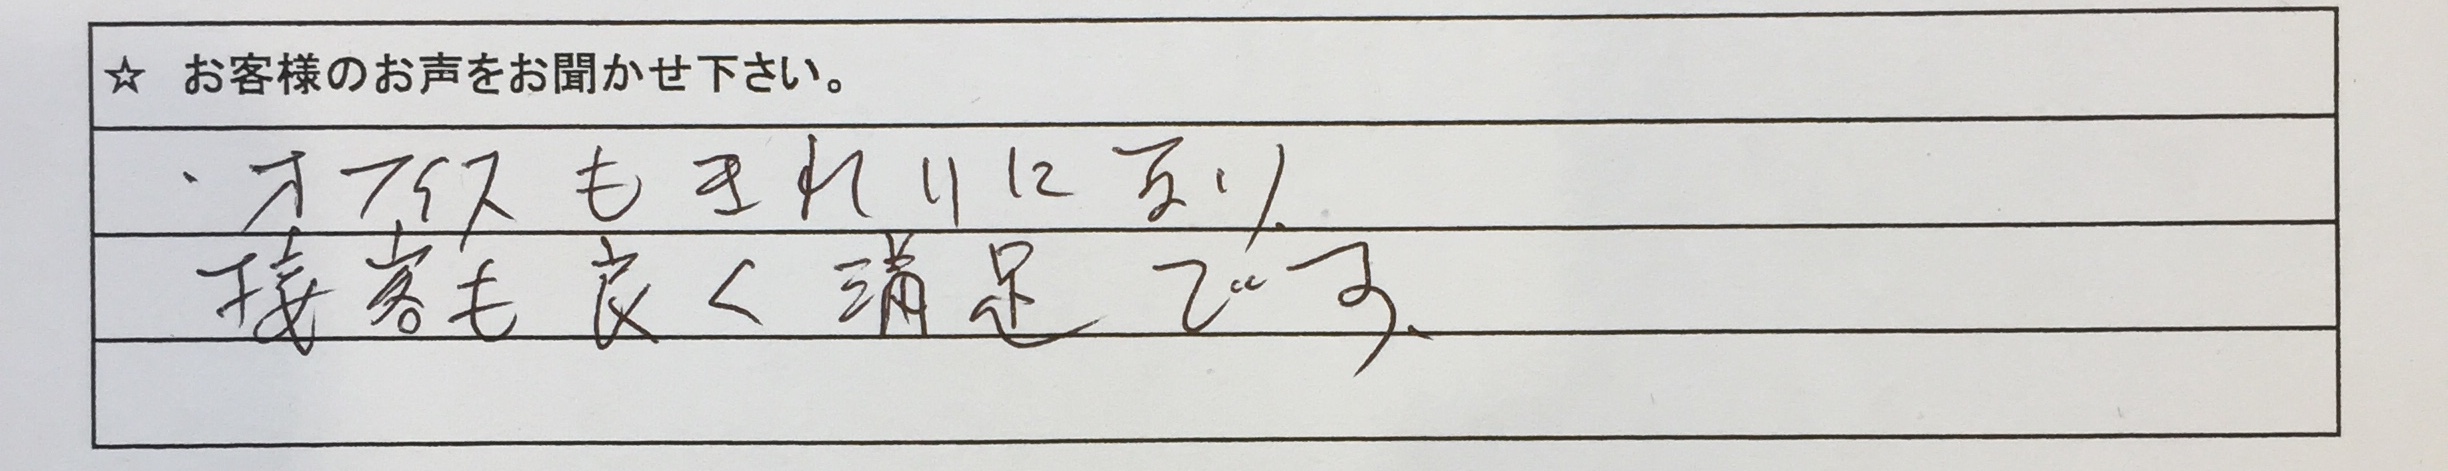 ☆ お客様のお声をお聞かせ下さい。
・オフィスもきれいになり、
接客も良く満足です。